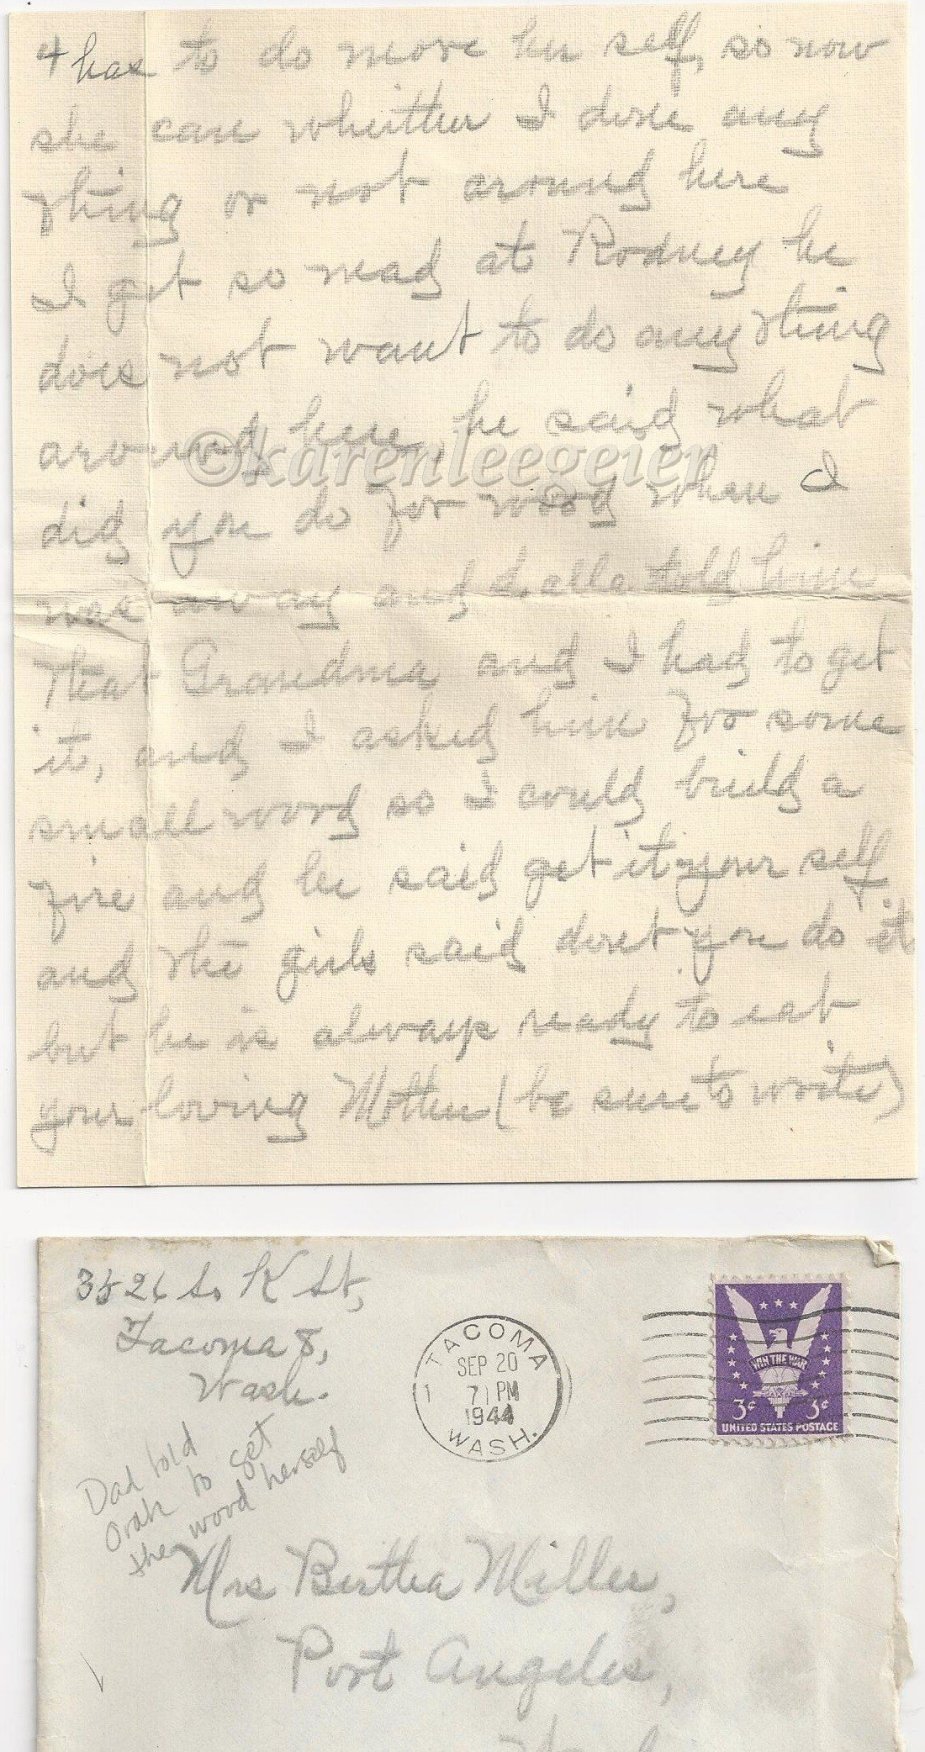 4 has to do more her self, so now
she care whitther I done any
thing or not around here
I get so mad at Rodney he
does not want to do any thing
around here, he said what
©karenleegeier
did you do for wood when I
was away and told him
that Grandma and I had to get
it, and I asked him for some
small wood so I could build a
fire and he said get it your self
and the girls said dont you do it
but he is always ready to eat
your loving Mother (be sure to write)
3526 So K St,
Tacoma 8,
Wash.
TACOMA
SEP 20
1 7 PM
1944
WASH.
WIN THE WAR
3¢ 3¢
UNITED STATES POSTAGE
Dad told
Orah to get
the wood herself
Mrs Bertha Miller,
Port Angeles,